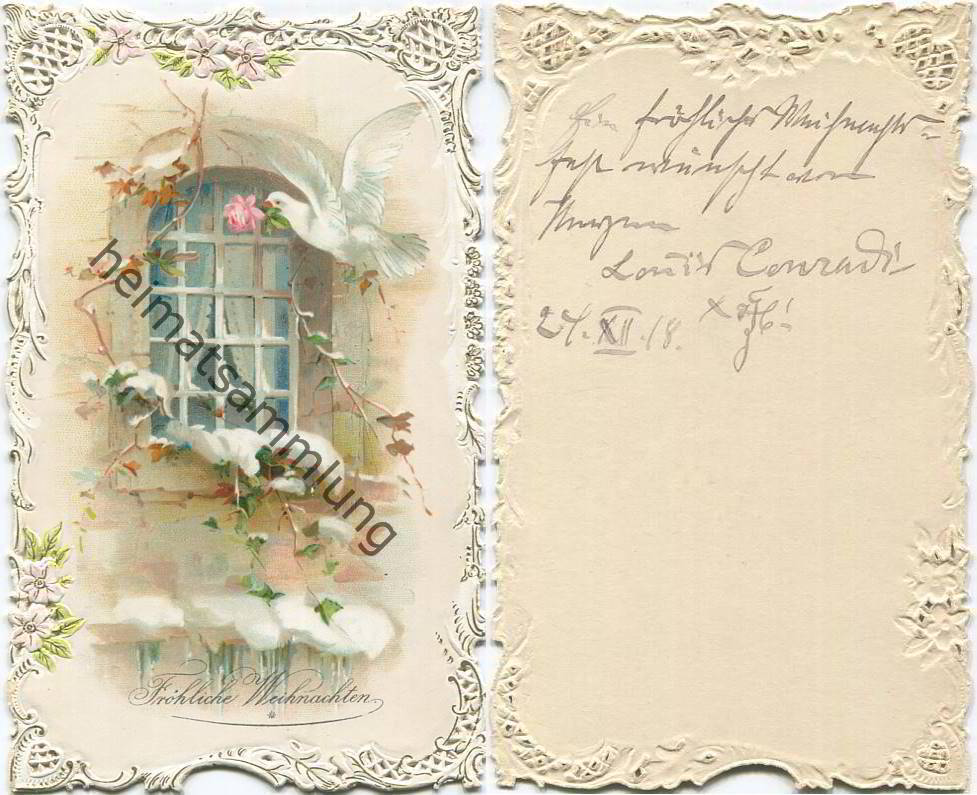 Fröhliche Weihnachten
heimatsammlung
Ein fröhliches Weihnachts-
fest wünscht von
Herzen
Louis Conradi
24. XII. 18.